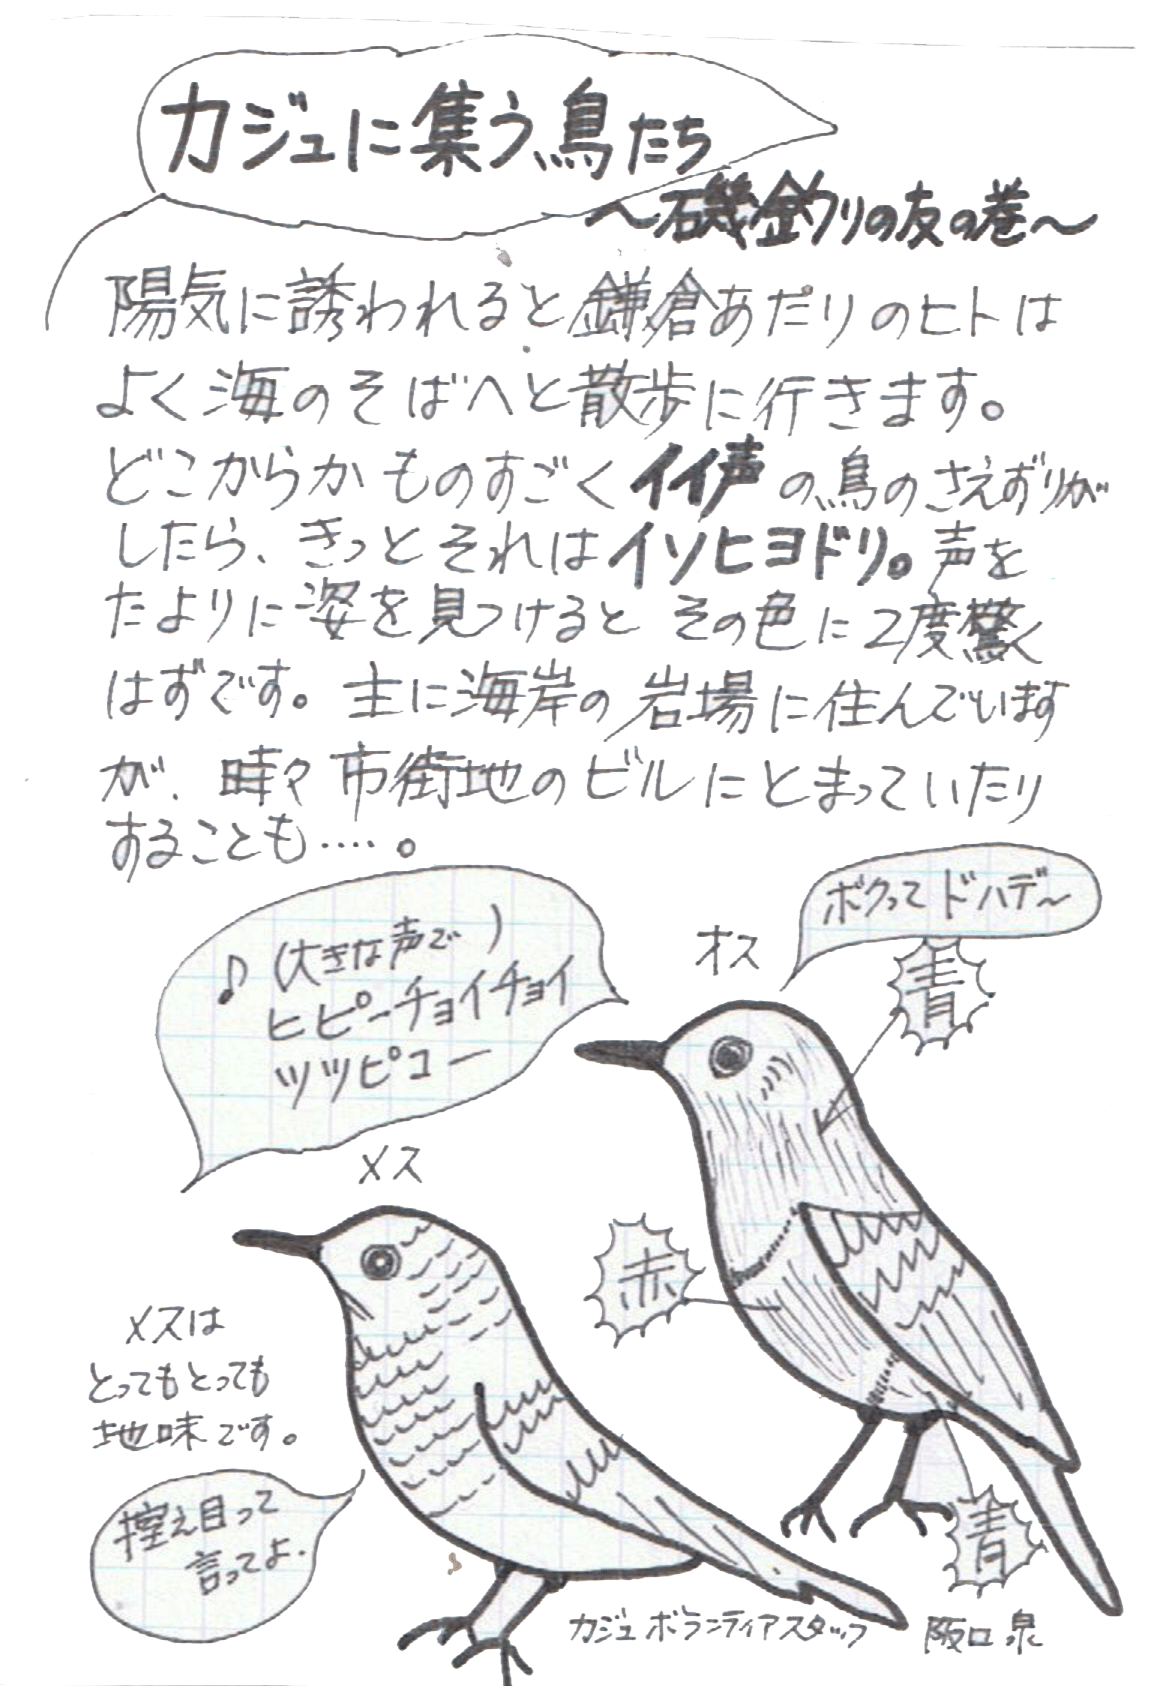 カジュに集う鳥たち
～磯釣りの友の巻～
陽気に誘われると鎌倉あたりのヒトは
よく海のそばへと散歩に行きます。
どこからかものすごくイイ声の鳥のさえずりが
したら、きっとそれはイソヒヨドリ。声を
たよりに姿を見つけるとその色に2度驚く
はずです。主に海岸の岩場に住んでいます
が、時々市街地のビルにとまっていたり
することも‥‥。
ボクってドハデ～
オス
青
♪(大きな声で)
ヒピーチョイチョイ
ツツピコー
メス
赤
メスは
とってもとっても
地味です。
控え目って
言ってよ.
青
カジュボランティアスタッフ 阪口泉